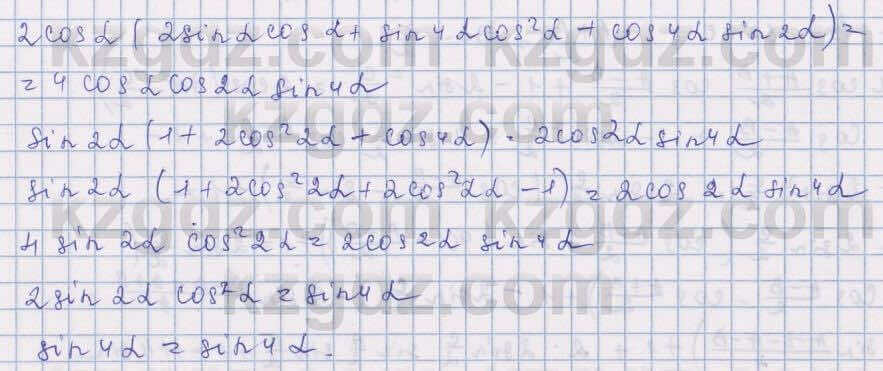 2cosα(2sinαcosα+sin4αcos²α+cos4αsin2α)=
=4cosαcos2αsin4α
sin2α(1+2cos²2α+cos4α)·2cos2αsin4α
sin2α(1+2cos²2α+2cos²2α-1)=2cos2αsin4α
4sin2αcos²2α=2cos2αsin4α
2sin2αcos²α=sin4α
sin4α=sin4α.
kzgdz.com